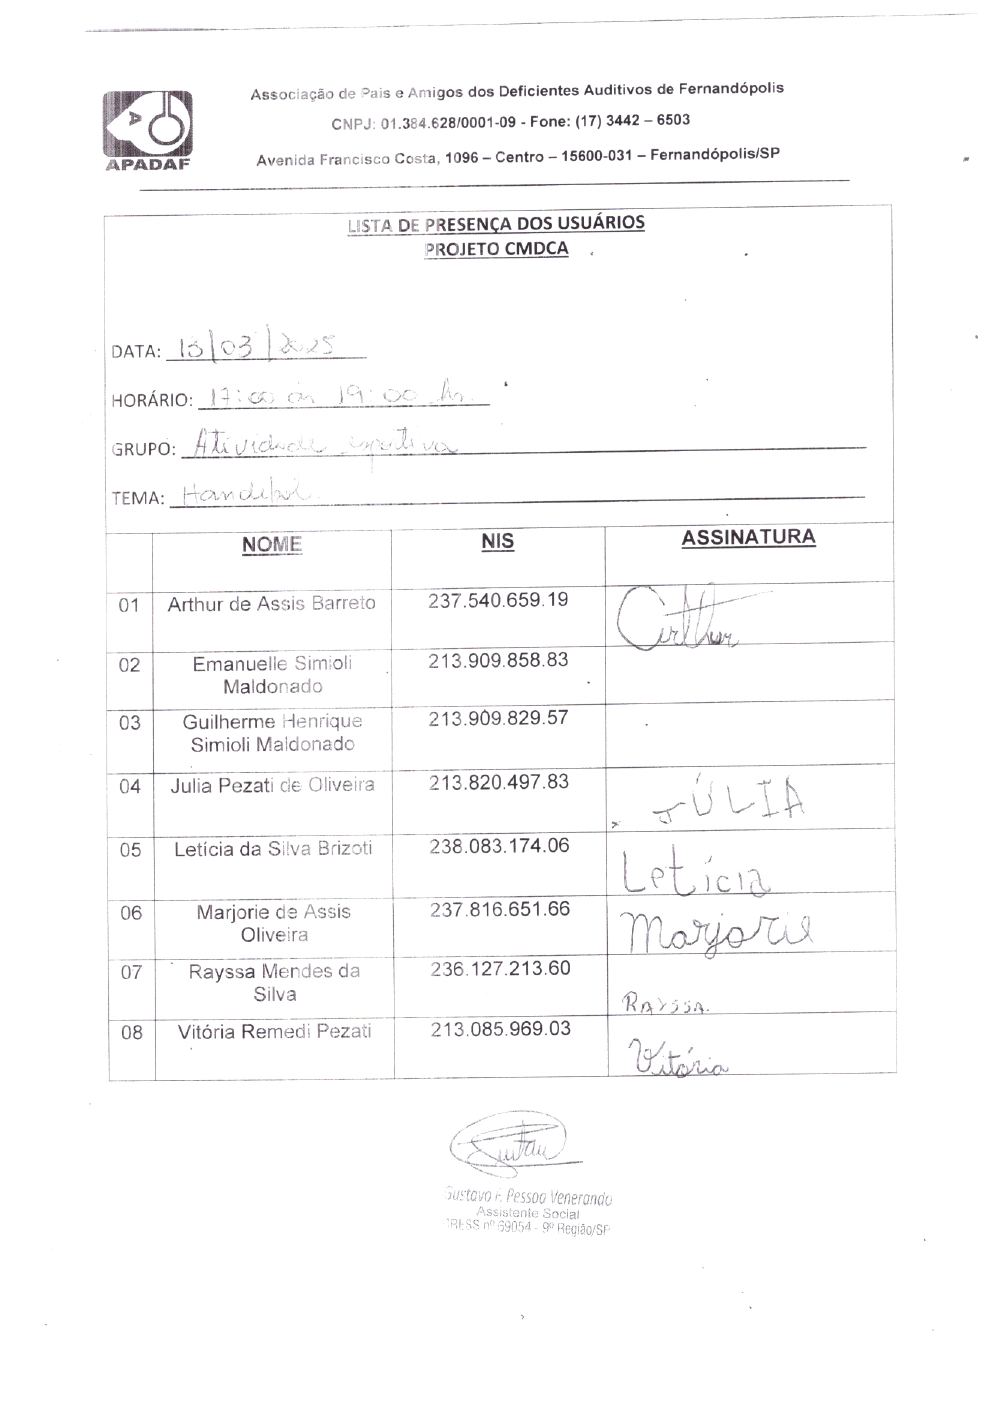 Associação de Pais e Amigos dos Deficientes Auditivos de Fernandópolis
CNPJ: 01.384.628/0001-09 - Fone: (17) 3442 – 6503
APADAF
Avenida Francisco Costa, 1096 – Centro – 15600-031 – Fernandópolis/SP
LISTA DE PRESENÇA DOS USUÁRIOS
PROJETO CMDCA
DATA: /03/2025
HORÁRIO: 17:00 às 19:00 hs.
GRUPO: Atividade esportiva
TEMA:
NOME NIS ASSINATURA
01 Arthur de Assis Barreto 237.540.659.19 Arthur
02 Emanuelle Simioli 213.909.858.83
Maldonado
03 Guilherme Henrique 213.909.829.57
Simioli Maldonado
04 Julia Pezati de Oliveira 213.820.497.83 JÚLIA
05 Letícia da Silva Brizoti 238.083.174.06 Letícia
06 Marjorie de Assis 237.816.651.66 Marjorie
Oliveira
07 Rayssa Mendes da 236.127.213.60
Silva RAYSSA.
08 Vitória Remedi Pezati 213.085.969.03 Vitória
Gustavo F. Pessoa Venerando
Assistente Social
CRESS nº 69054 - 9º Região/SP